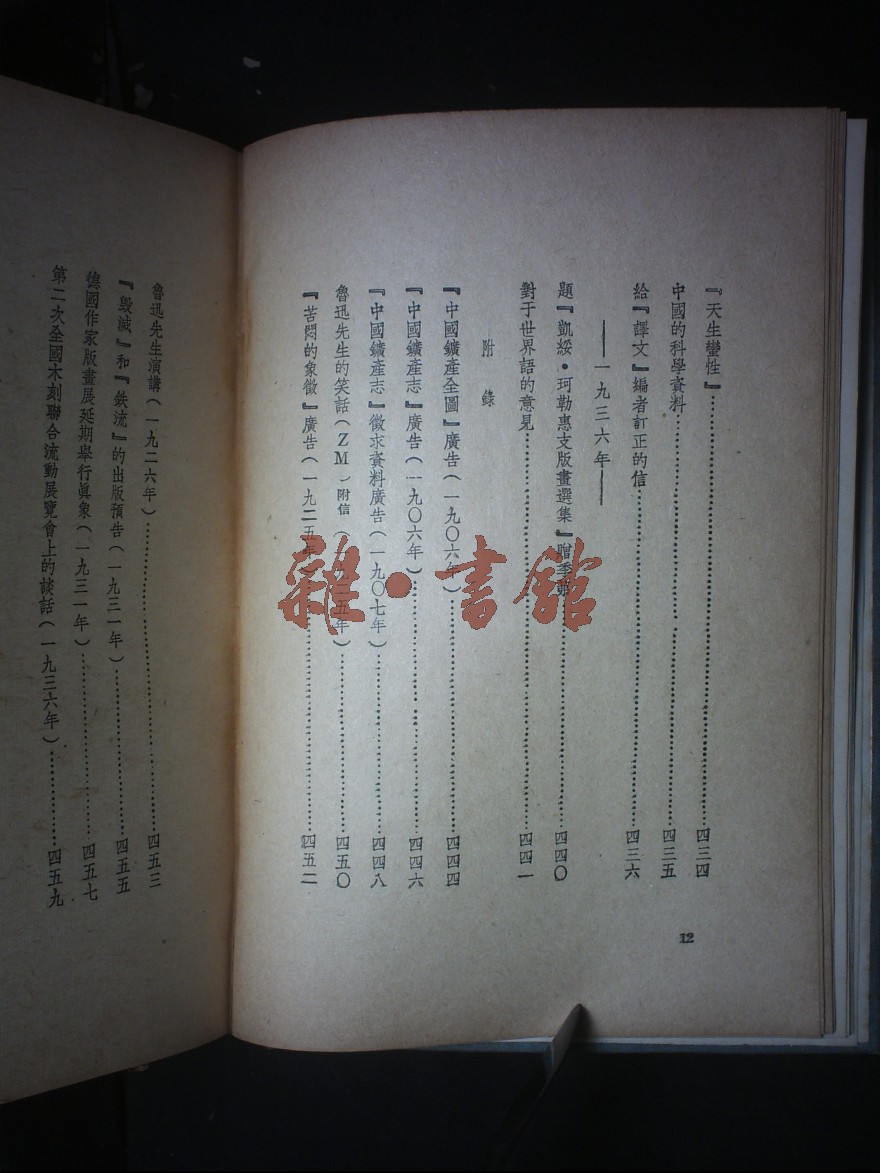 『天生蠻性』……四三四
中國的科學資料……四三五
給『譯文』編者訂正的信……四三六
——一九三六年——
題『凱綏·珂勒惠支版畫選集』贈季茀……四四〇
對于世界語的意見……四四一
附錄
『中國鑛產全圖』廣告(一九〇六年)……四四四
『中國鑛產志』廣告(一九〇六年)……四四六
『中國鑛產志』徵求資料廣告(一九〇七年)……四四八
魯迅先生的笑話(ZM)附信(一九二五年)……四五〇
『苦悶的象徵』廣告(一九二五年)……四五二
12
魯迅先生演講(一九二六年)……四五三
『毀滅』和『鉄流』的出版預告(一九三一年)……四五五
德國作家版畫展延期舉行眞象(一九三一年)……四五七
第二次全國木刻聯合流動展覽會上的談話(一九三六年)……四五九
雜·書館